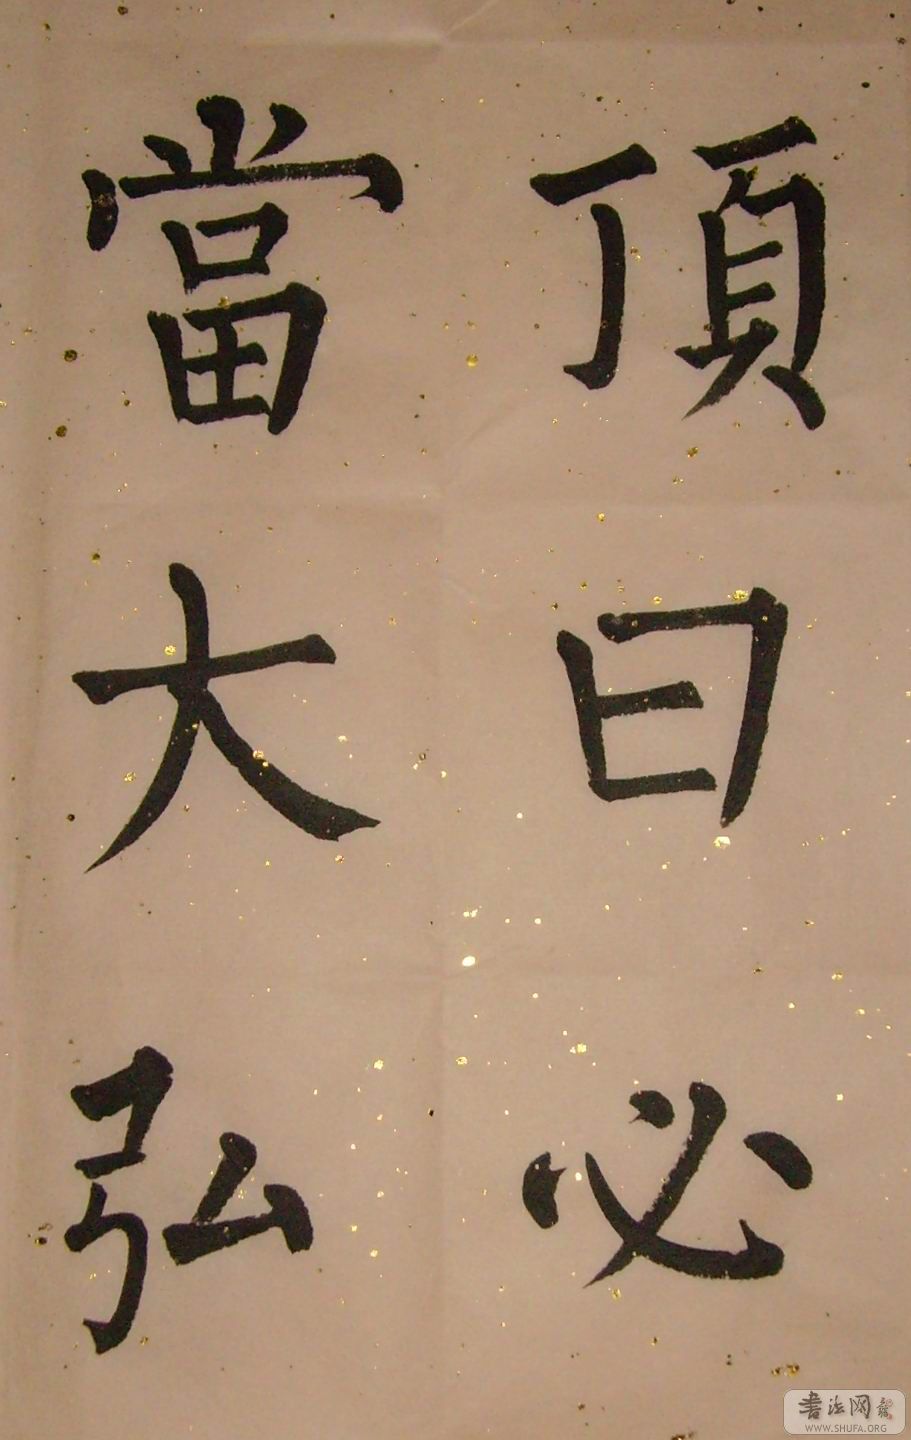 頂曰必
當大弘
書法网
WWW.SHUFA.ORG